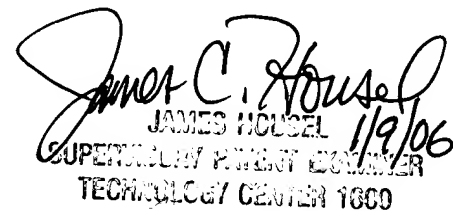 James C. Housel
JAMES HOUSEL
1/9/06
SUPERVISORY PATENT EXAMINER
TECHNOLOGY CENTER 1600